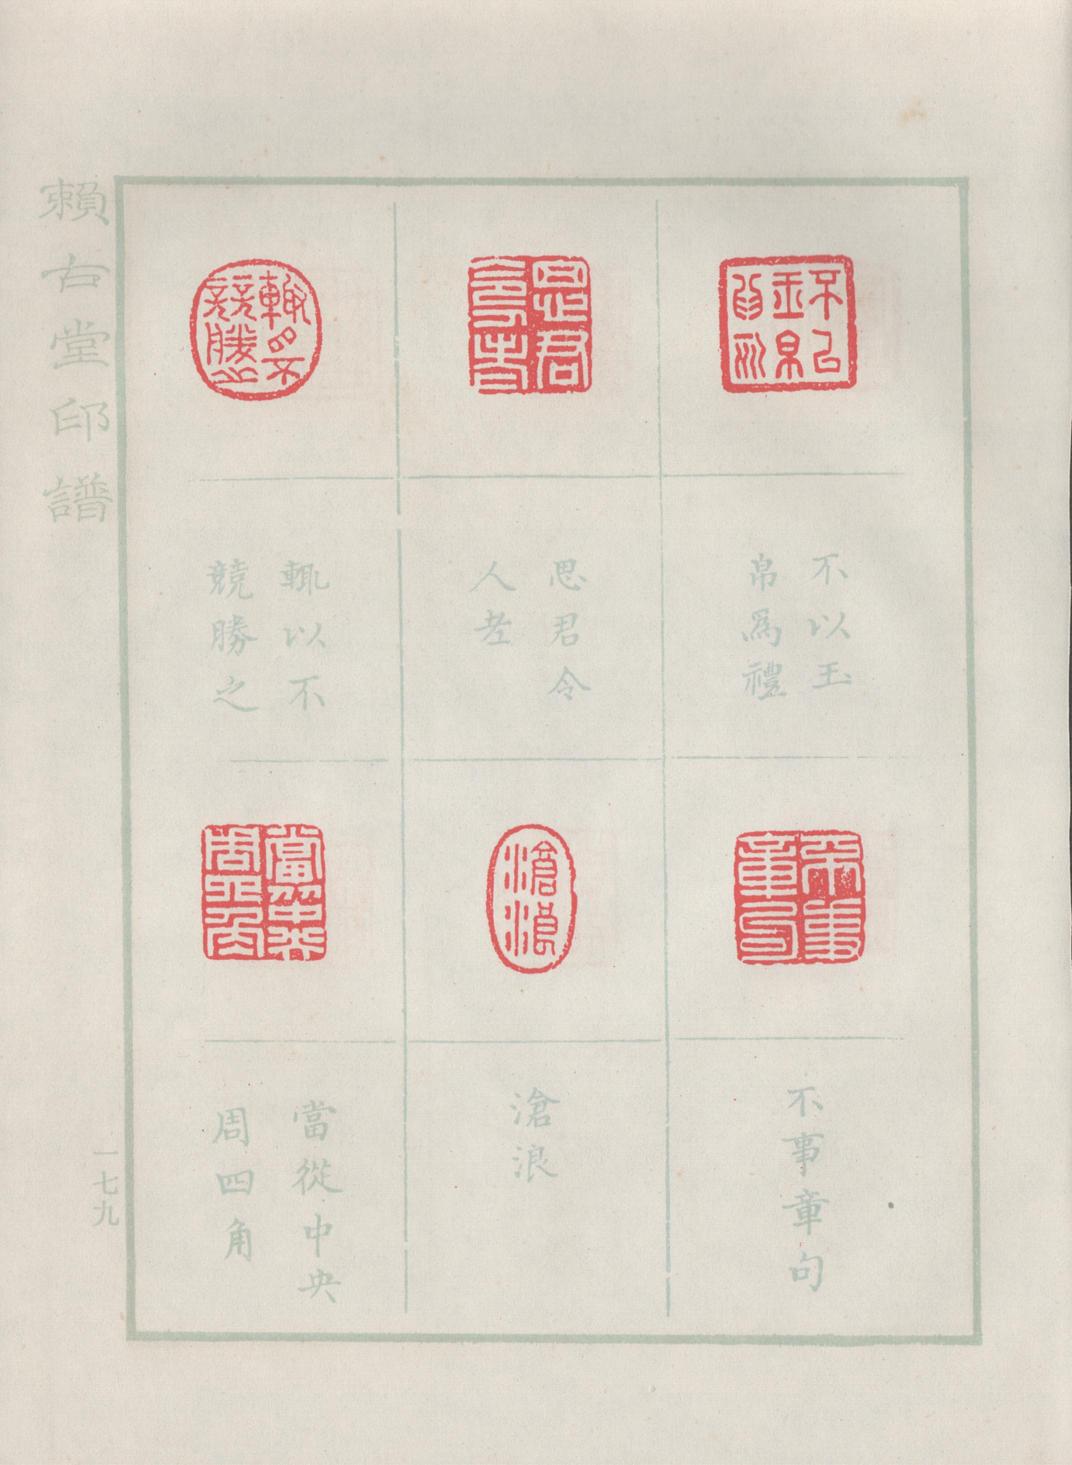 賴古堂印譜
不以玉
帛為禮
思君令
人老
輒以不
競勝之
不事章句
滄浪
當從中央
周四角
一七九